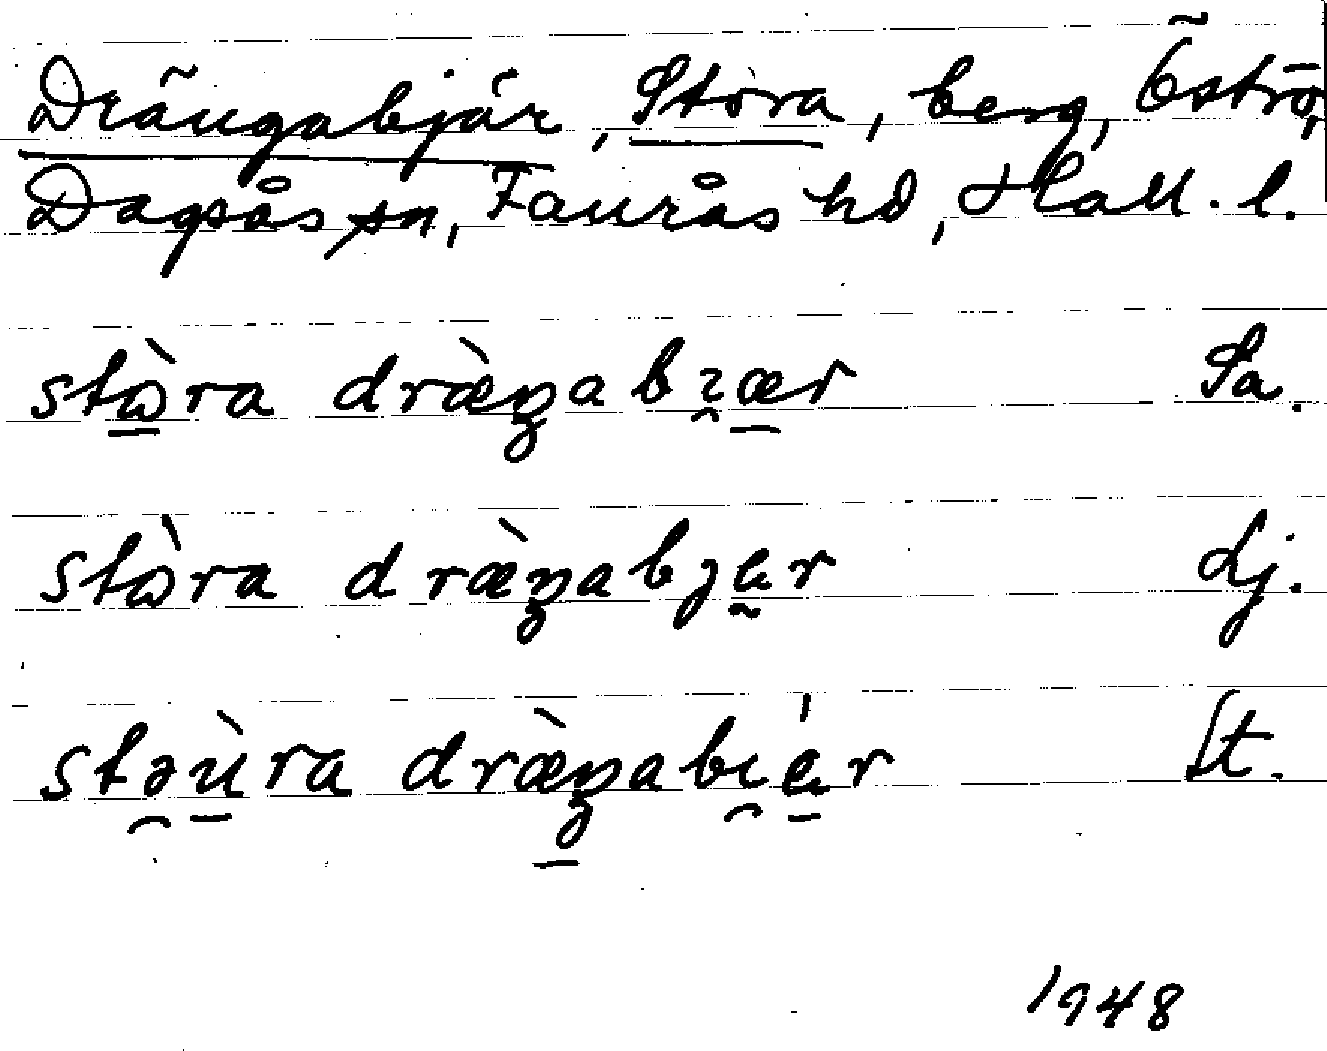 Drängabjär, Stora, berg, Öströ,
Dagsås sn, Faurås hd, Hall. l.
stɷ̀ra dræ̀ŋabɿær Sa.
stɷ̀ra dræ̀ŋabȷer Lj.
stəùra dræ̀ŋabıér St.
1948